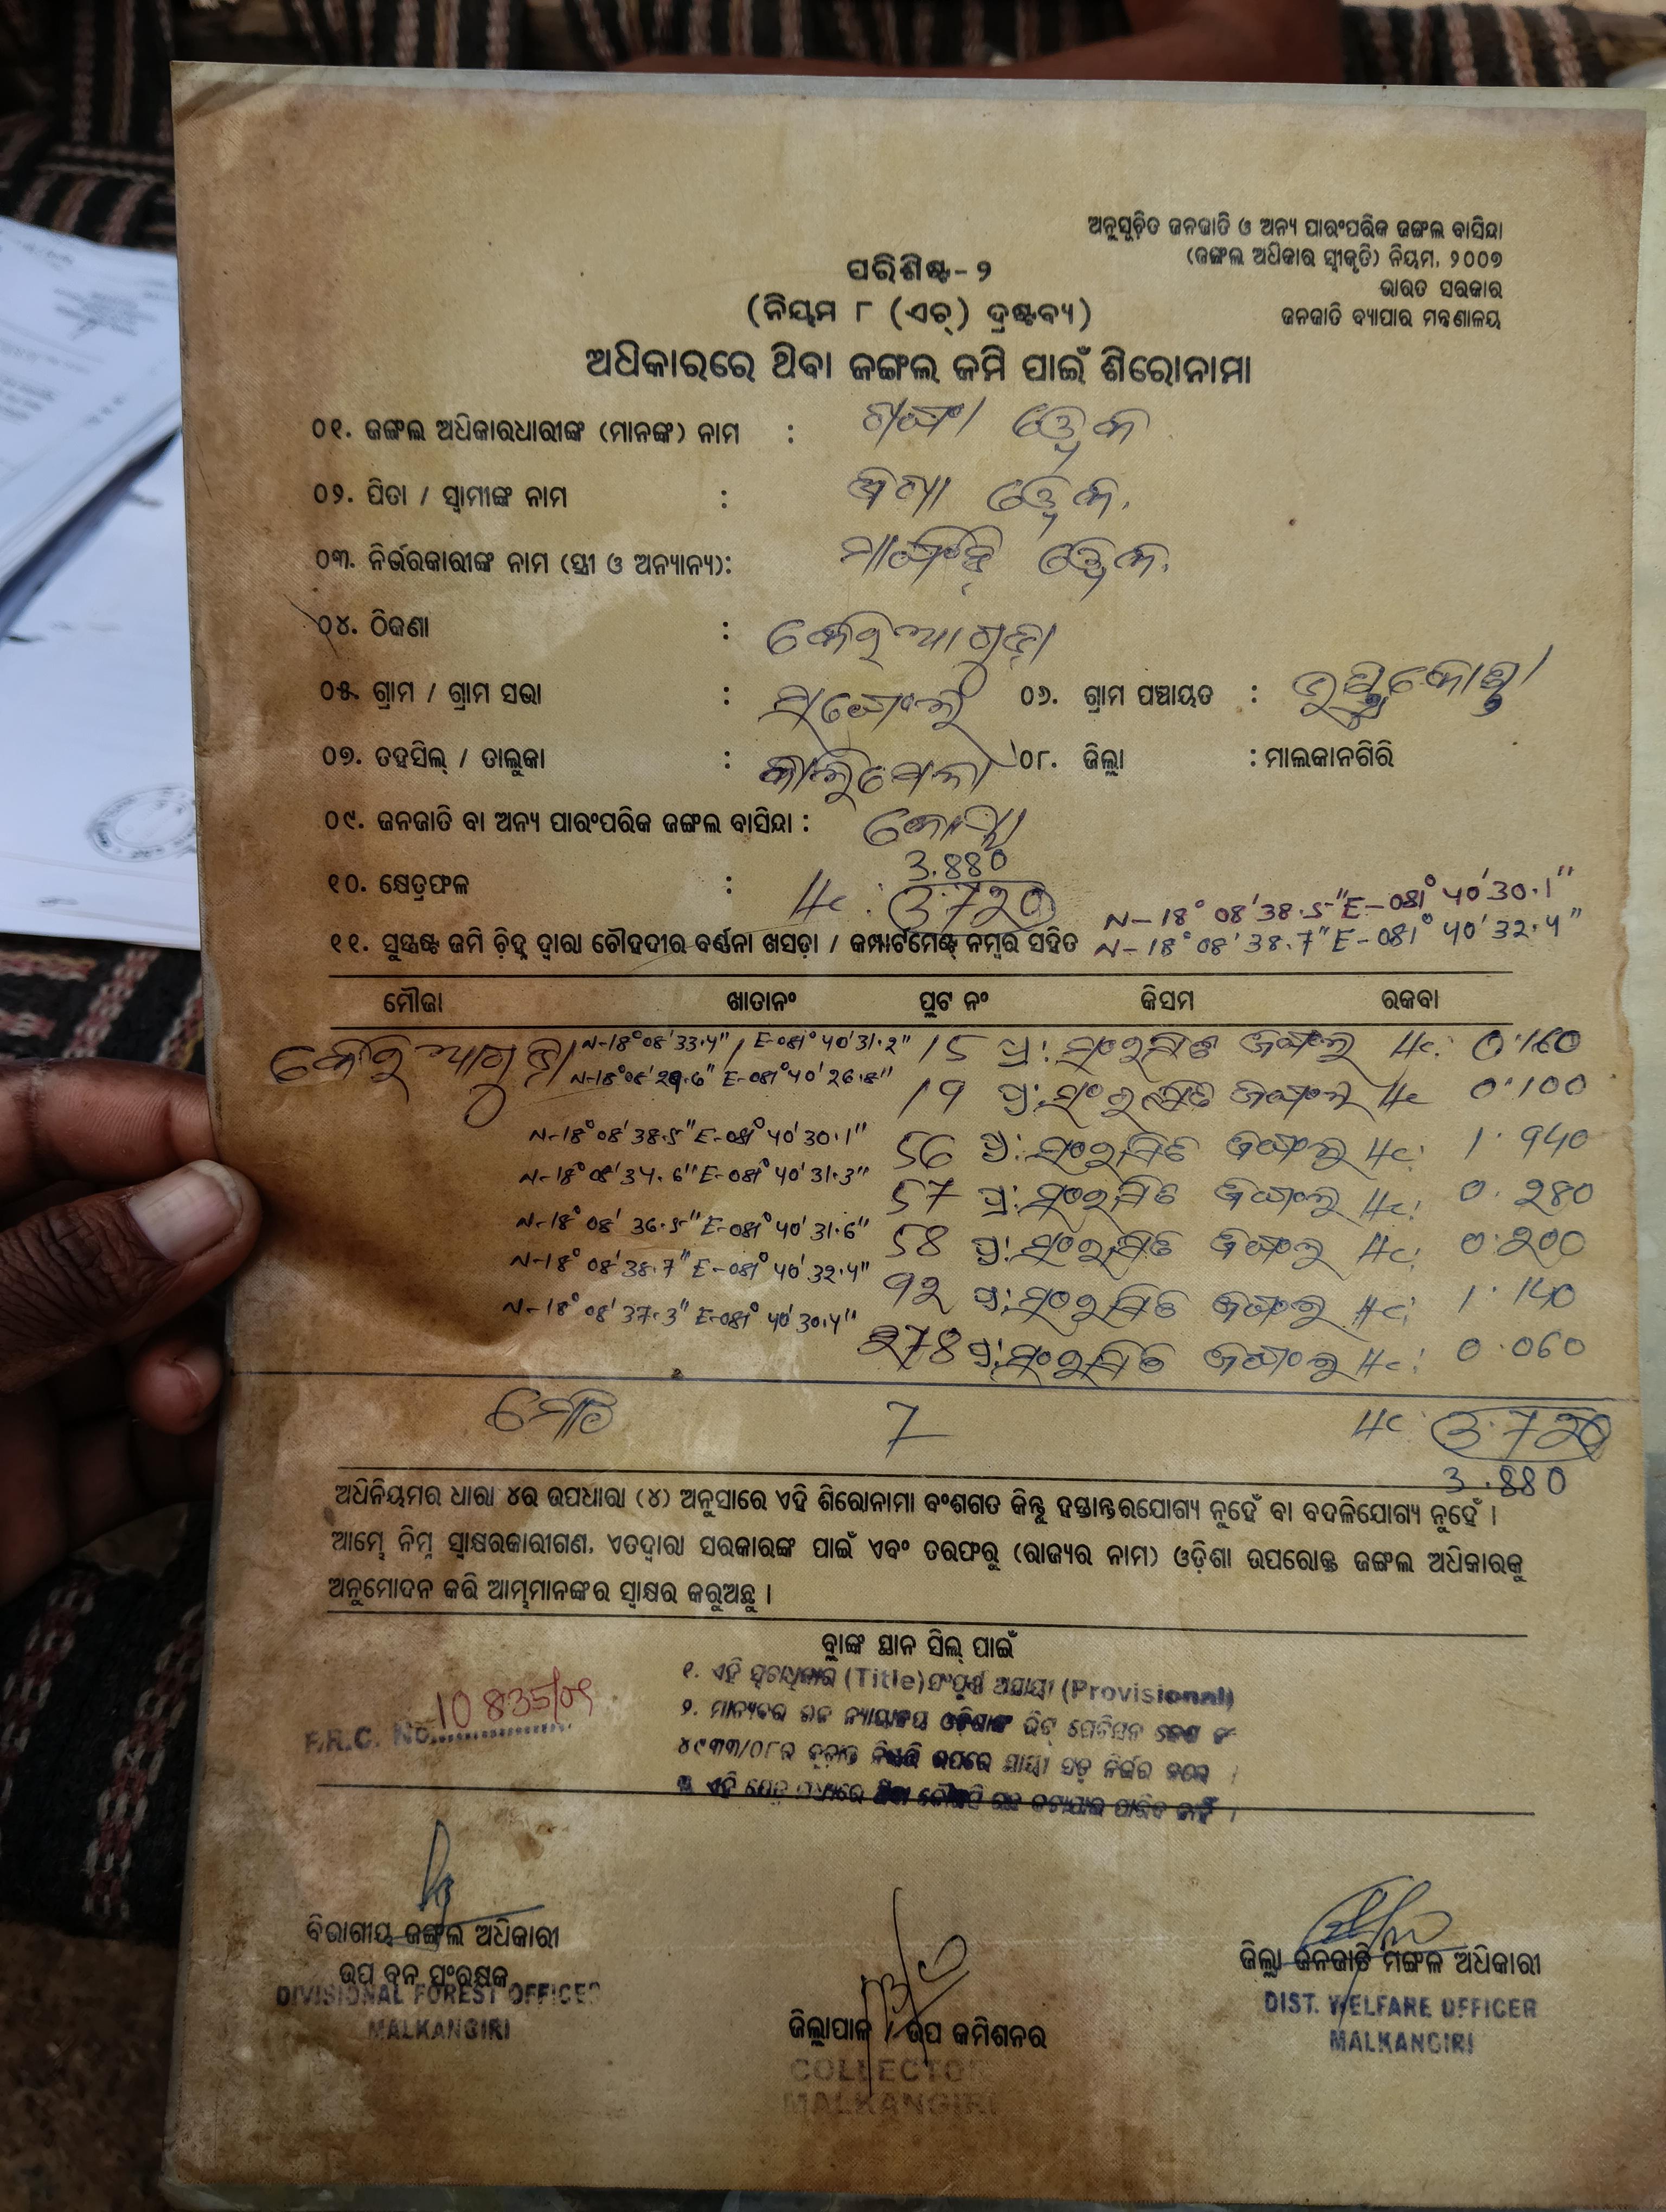 ଅନୁସୂଚିତ ଜନଜାତି ଓ ଅନ୍ୟ ପାରଂପରିକ ଜଙ୍ଗଲ ବାସିନ୍ଦା
(ଜଙ୍ଗଲ ଅଧିକାର ସ୍ୱୀକୃତି) ନିୟମ, ୨୦୦୭
ଭାରତ ସରକାର
ଜନଜାତି ବ୍ୟାପାର ମନ୍ତ୍ରଣାଳୟ
ପରିଶିଷ୍ଟ - ୨
(ନିୟମ ୮ (ଏଚ୍) ଦ୍ରଷ୍ଟବ୍ୟ)
ଅଧିକାରରେ ଥିବା ଜଙ୍ଗଲ ଜମି ପାଇଁ ଶିରୋନାମା
୦୧. ଜଙ୍ଗଲ ଅଧିକାରଧାରୀଙ୍କ (ମାନଙ୍କ) ନାମ :
୦୨. ପିତା / ସ୍ୱାମୀଙ୍କ ନାମ :
୦୩. ନିର୍ଭରକାରୀଙ୍କ ନାମ (ସ୍ତ୍ରୀ ଓ ଅନ୍ୟାନ୍ୟ):
୦୪. ଠିକଣା : କେରିଆଗୁଡ଼ା
୦୫. ଗ୍ରାମ / ଗ୍ରାମ ସଭା : ୦୬. ଗ୍ରାମ ପଞ୍ଚାୟତ :
୦୭. ତହସିଲ୍ / ତାଲୁକା : କାଲିମେଳା ୦୮. ଜିଲ୍ଲା : ମାଲକାନଗିରି
୦୯. ଜନଜାତି ବା ଅନ୍ୟ ପାରଂପରିକ ଜଙ୍ଗଲ ବାସିନ୍ଦା : କୋୟା
3.880
୧୦. କ୍ଷେତ୍ରଫଳ : Ac. 3.720 N-18° 08' 38.5" E-081° 40' 30.1"
୧୧. ସୁସ୍ପଷ୍ଟ ଜମି ଚିହ୍ନ ଦ୍ୱାରା ଚୌହଦୀର ବର୍ଣ୍ଣନା ଖସଡ଼ା / କମ୍ପାର୍ଟମେଣ୍ଟ୍ ନମ୍ବର ସହିତ N-18° 08' 38.7" E-081° 40' 32.4"
ମୌଜା ଖାତାନଂ ପ୍ଲଟ ନଂ କିସମ ରକବା
କେରିଆଗୁଡ଼ା N-18° 08' 33.4" / E-081° 40' 31.2" 15 ପ୍ର: ସଂରକ୍ଷିତ ଜଙ୍ଗଲ Ac. 0.160
N-18° 08' 29.6" E-081° 40' 26.8" 19 ପ୍ର: ସଂରକ୍ଷିତ ଜଙ୍ଗଲ Ac 0.100
N-18° 08' 38.5" E-081° 40' 30.1" 56 ପ୍ର: ସଂରକ୍ଷିତ ଜଙ୍ଗଲ Ac: 1.940
N-18° 08' 34.6" E-081° 40' 31.3" 57 ପ୍ର: ସଂରକ୍ଷିତ ଜଙ୍ଗଲ Ac: 0.280
N-18° 08' 36.5" E-081° 40' 31.6" 58 ପ୍ର: ସଂରକ୍ଷିତ ଜଙ୍ଗଲ Ac: 0.200
N-18° 08' 38.7" E-081° 40' 32.4" 92 ପ୍ର: ସଂରକ୍ଷିତ ଜଙ୍ଗଲ Ac: 1.140
N-18° 08' 37.3" E-081° 40' 30.4" 278 ପ୍ର: ସଂରକ୍ଷିତ ଜଙ୍ଗଲ Ac: 0.060
ମୋଟ 7 Ac 3.720
3.880
ଅଧିନିୟମର ଧାରା ୪ର ଉପଧାରା (୪) ଅନୁସାରେ ଏହି ଶିରୋନାମା ବଂଶଗତ କିନ୍ତୁ ହସ୍ତାନ୍ତରଯୋଗ୍ୟ ନୁହେଁ ବା ବଦଳିଯୋଗ୍ୟ ନୁହେଁ ।
ଆମ୍ଭେ ନିମ୍ନ ସ୍ୱାକ୍ଷରକାରୀଗଣ, ଏତଦ୍ୱାରା ସରକାରଙ୍କ ପାଇଁ ଏବଂ ତରଫରୁ (ରାଜ୍ୟର ନାମ) ଓଡ଼ିଶା ଉପରୋକ୍ତ ଜଙ୍ଗଲ ଅଧିକାରକୁ
ଅନୁମୋଦନ କରି ଆମ୍ଭମାନଙ୍କର ସ୍ୱାକ୍ଷର କରୁଅଛୁ ।
ବ୍ଲାଙ୍କ ସ୍ଥାନ ସିଲ୍ ପାଇଁ
୧. ଏହି ସ୍ୱତ୍ୱାଧିକାର (Title) ସଂପୂର୍ଣ୍ଣ ଅସ୍ଥାୟୀ (Provisional)
F.R.C. No. 10835/09
୨. ମାନ୍ୟବର ଉଚ୍ଚ ନ୍ୟାୟାଳୟ ଓଡ଼ିଶାଙ୍କ ରିଟ୍ ପେଟିସନ
୪୯୩୩/୦୮ର ଚୂଡ଼ାନ୍ତ ନିଷ୍ପତ୍ତି ଉପରେ ସ୍ଥାୟୀ ନିର୍ଭର କରେ ।
ବିଭାଗୀୟ ଜଙ୍ଗଲ ଅଧିକାରୀ
ଉପ ବନ ସଂରକ୍ଷକ
DIVISIONAL FOREST OFFICER
MALKANGIRI
ଜିଲ୍ଲାପାଳ / ଉପ କମିଶନର
COLLECTOR
MALKANGIRI
ଜିଲ୍ଲା ଜନଜାତି ମଙ୍ଗଳ ଅଧିକାରୀ
DIST. WELFARE OFFICER
MALKANGIRI